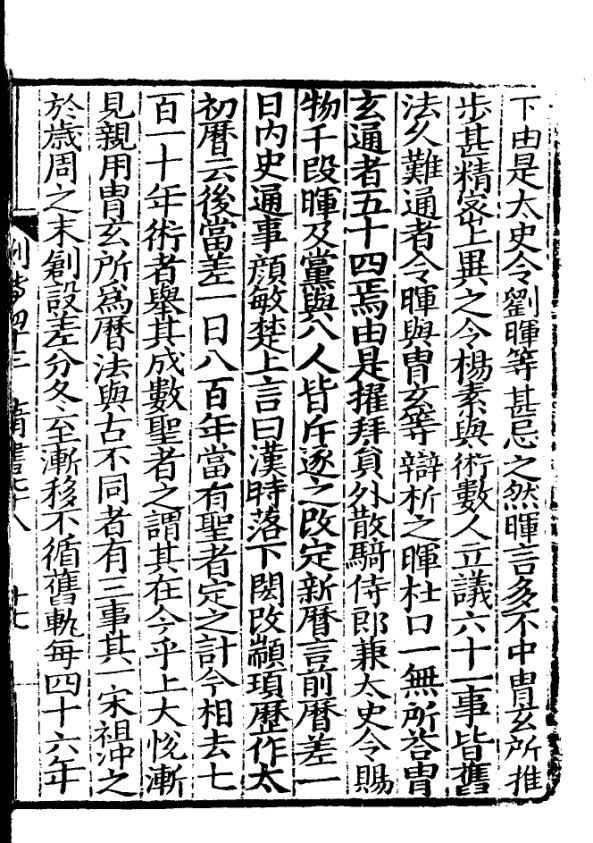 下由是太史令劉暉等甚忌之然暉言多不中胄玄所推
步甚精密上異之令楊素與術數人立議六十一事皆舊
法久難通者令暉與胄玄等辯析之暉杜口一無所荅胄
玄通者五十四焉由是擢拜員外散騎侍郎兼太史令賜
物千段暉及黨與八人皆斥逐之改定新曆言前曆差一
日內史通事顔敏楚上言曰漢時落下閎改顓頊歷作太
初曆云後當差一日八百年當有聖者定之計今相去七
百一十年術者舉其成數聖者之謂其在今乎上大悅漸
見親用胄玄所爲曆法與古不同者有三事其一宋祖冲之
於歲周之末創設差分冬至漸移不循舊軌每四十六年
列傳四十三 隋書七十八 十七